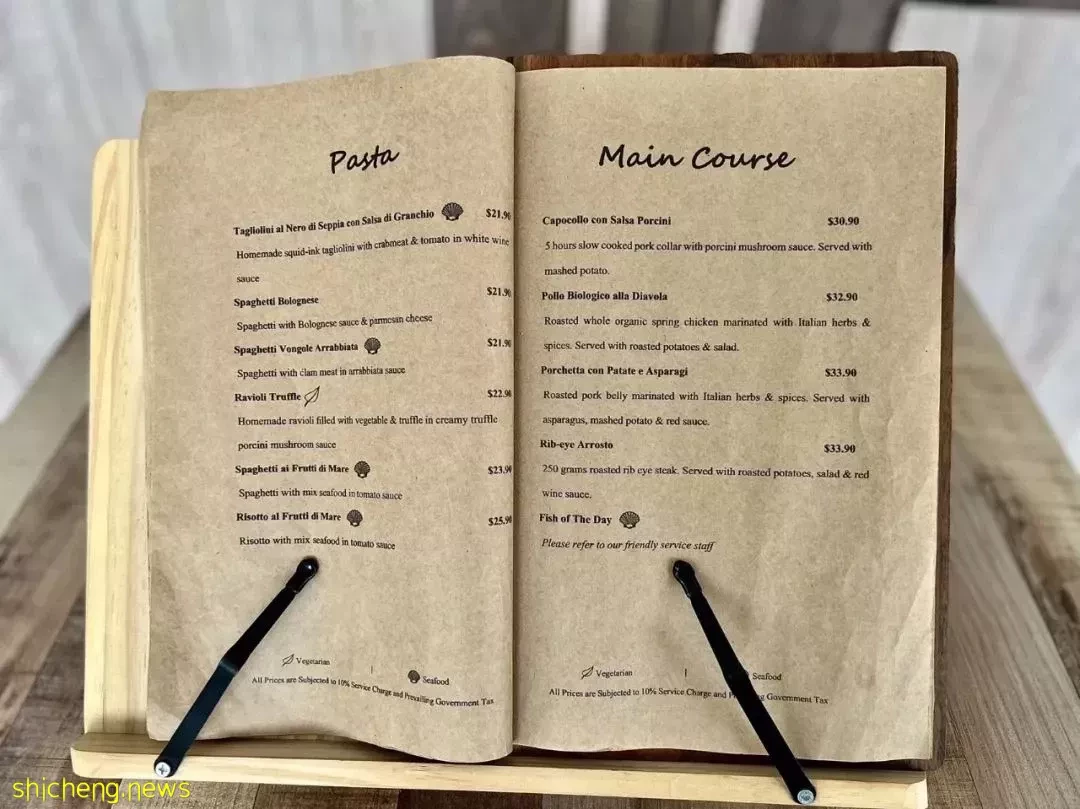 Pasta
Tagliolini al Nero di Seppia con Salsa di Granchio $21.90
Homemade squid-ink tagliolini with crabmeat & tomato in white wine
sauce
Spaghetti Bolognese $21.90
Spaghetti with Bolognese sauce & parmesan cheese
Spaghetti Vongole Arrabbiata $21.90
Spaghetti with clam meat in arrabbiata sauce
Ravioli Truffle $22.90
Homemade ravioli filled with vegetable & truffle in creamy truffle
porcini mushroom sauce
Spaghetti ai Frutti di Mare $23.90
Spaghetti with mix seafood in tomato sauce
Risotto al Frutti di Mare $25.90
Risotto with mix seafood in tomato sauce
Vegetarian | Seafood
All Prices are Subjected to 10% Service Charge and Prevailing Government Tax
Main Course
Capocollo con Salsa Porcini $30.90
5 hours slow cooked pork collar with porcini mushroom sauce. Served with
mashed potato.
Pollo Biologico alla Diavola $32.90
Roasted whole organic spring chicken marinated with Italian herbs &
spices. Served with roasted potatoes & salad.
Porchetta con Patate e Asparagi $33.90
Roasted pork belly marinated with Italian herbs & spices. Served with
asparagus, mashed potato & red sauce.
Rib-eye Arrosto $33.90
250 grams roasted rib eye steak. Served with roasted potatoes, salad & red
wine sauce.
Fish of The Day
Please refer to our friendly service staff
Vegetarian | Seafood
All Prices are Subjected to 10% Service Charge and Government Tax
shicheng.news